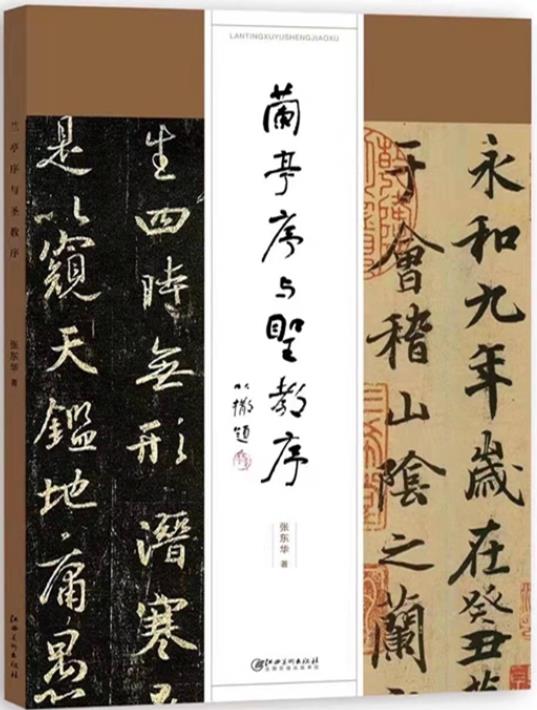 兰亭序与圣教序
张东华 著
LANTINGXUYUSHENGJIAOXU
蘭亭序与聖教序
以撒题
张东华 著
江西美术出版社
永和九年歲在癸丑
于會稽山陰之蘭
生四時無形潛寒
是以窺天鑑地庸愚